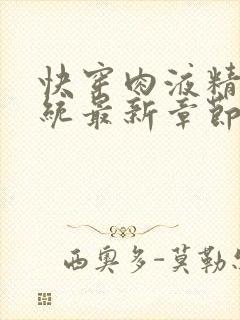 快穿肉液精
统最新章节
西奥多-莫勒